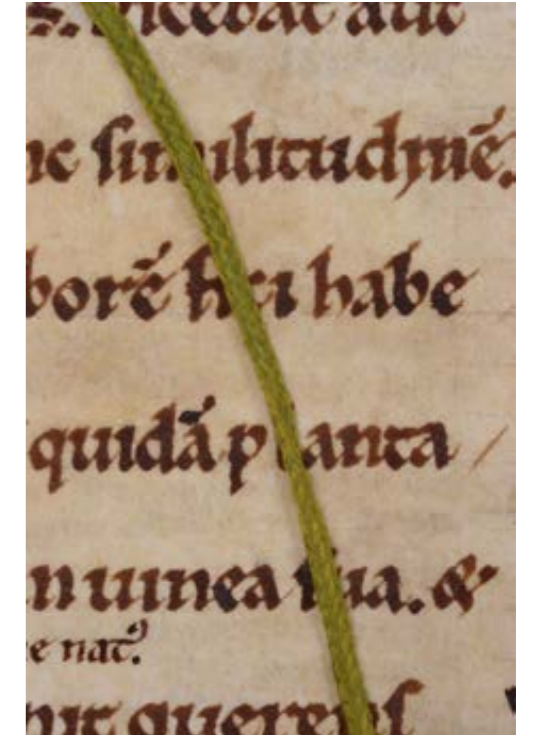 s. dicebat aut
nc similitudinē.
borē fici habe
quidā planta
in uinea sua. &
e nat᷒.
nit querens